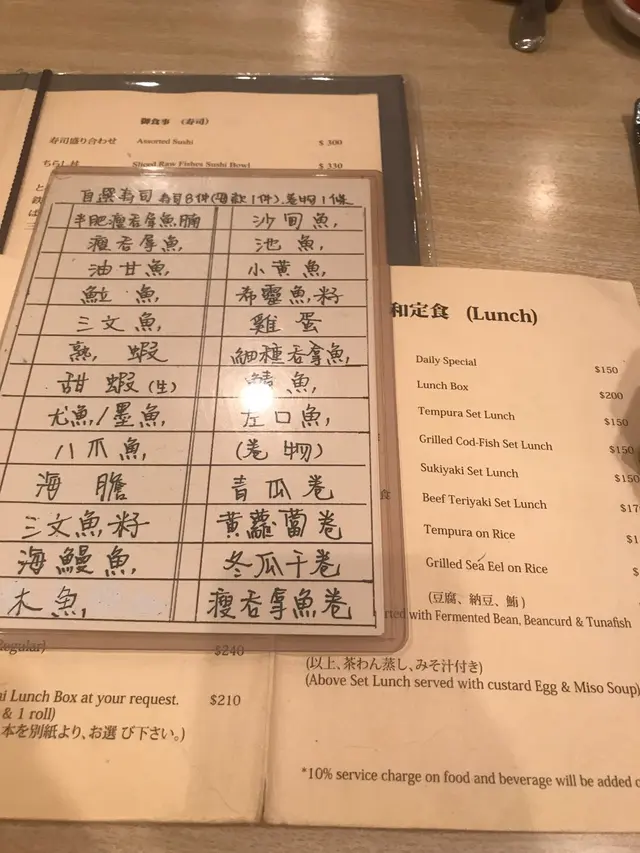 御食事 （寿司）
寿司盛り合わせ Assorted Sushi $ 300
ちらし Sliced Raw Fishes Sushi Bowl $ 330
自選寿司 寿司8件(每款1件),卷物1條
半肥瘦吞拿魚腩 沙甸魚,
瘦吞拿魚 池魚,
油甘魚, 小黄魚,
魚立魚 希靈魚籽
三文魚, 雞蛋
熟,蝦 細種吞拿魚,
甜蝦(生) 鯖魚,
尤魚/墨魚 左口魚,
八爪魚, (卷物)
海膽 青瓜卷
三文魚籽 黄蘿蔔卷
海鰻魚, 冬瓜干卷
木魚, 瘦吞拿魚卷
和定食 (Lunch)
Daily Special $150
Lunch Box $200
Tempura Set Lunch $150
Grilled Cod-Fish Set Lunch $150
Sukiyaki Set Lunch $150
Beef Teriyaki Set Lunch $17
食
Tempura on Rice $1
Grilled Sea Eel on Rice $
(豆腐、納豆、鮪)
with Fermented Bean, Beancurd & Tunafish
(以上、茶わん蒸し、みそ汁付き)
(Above Set Lunch served with custard Egg & Miso Soup)
*10% service charge on food and beverage will be added
Regular) $240
Lunch Box at your request. $210
& 1 roll)
本を別紙より、お選び下さい。)